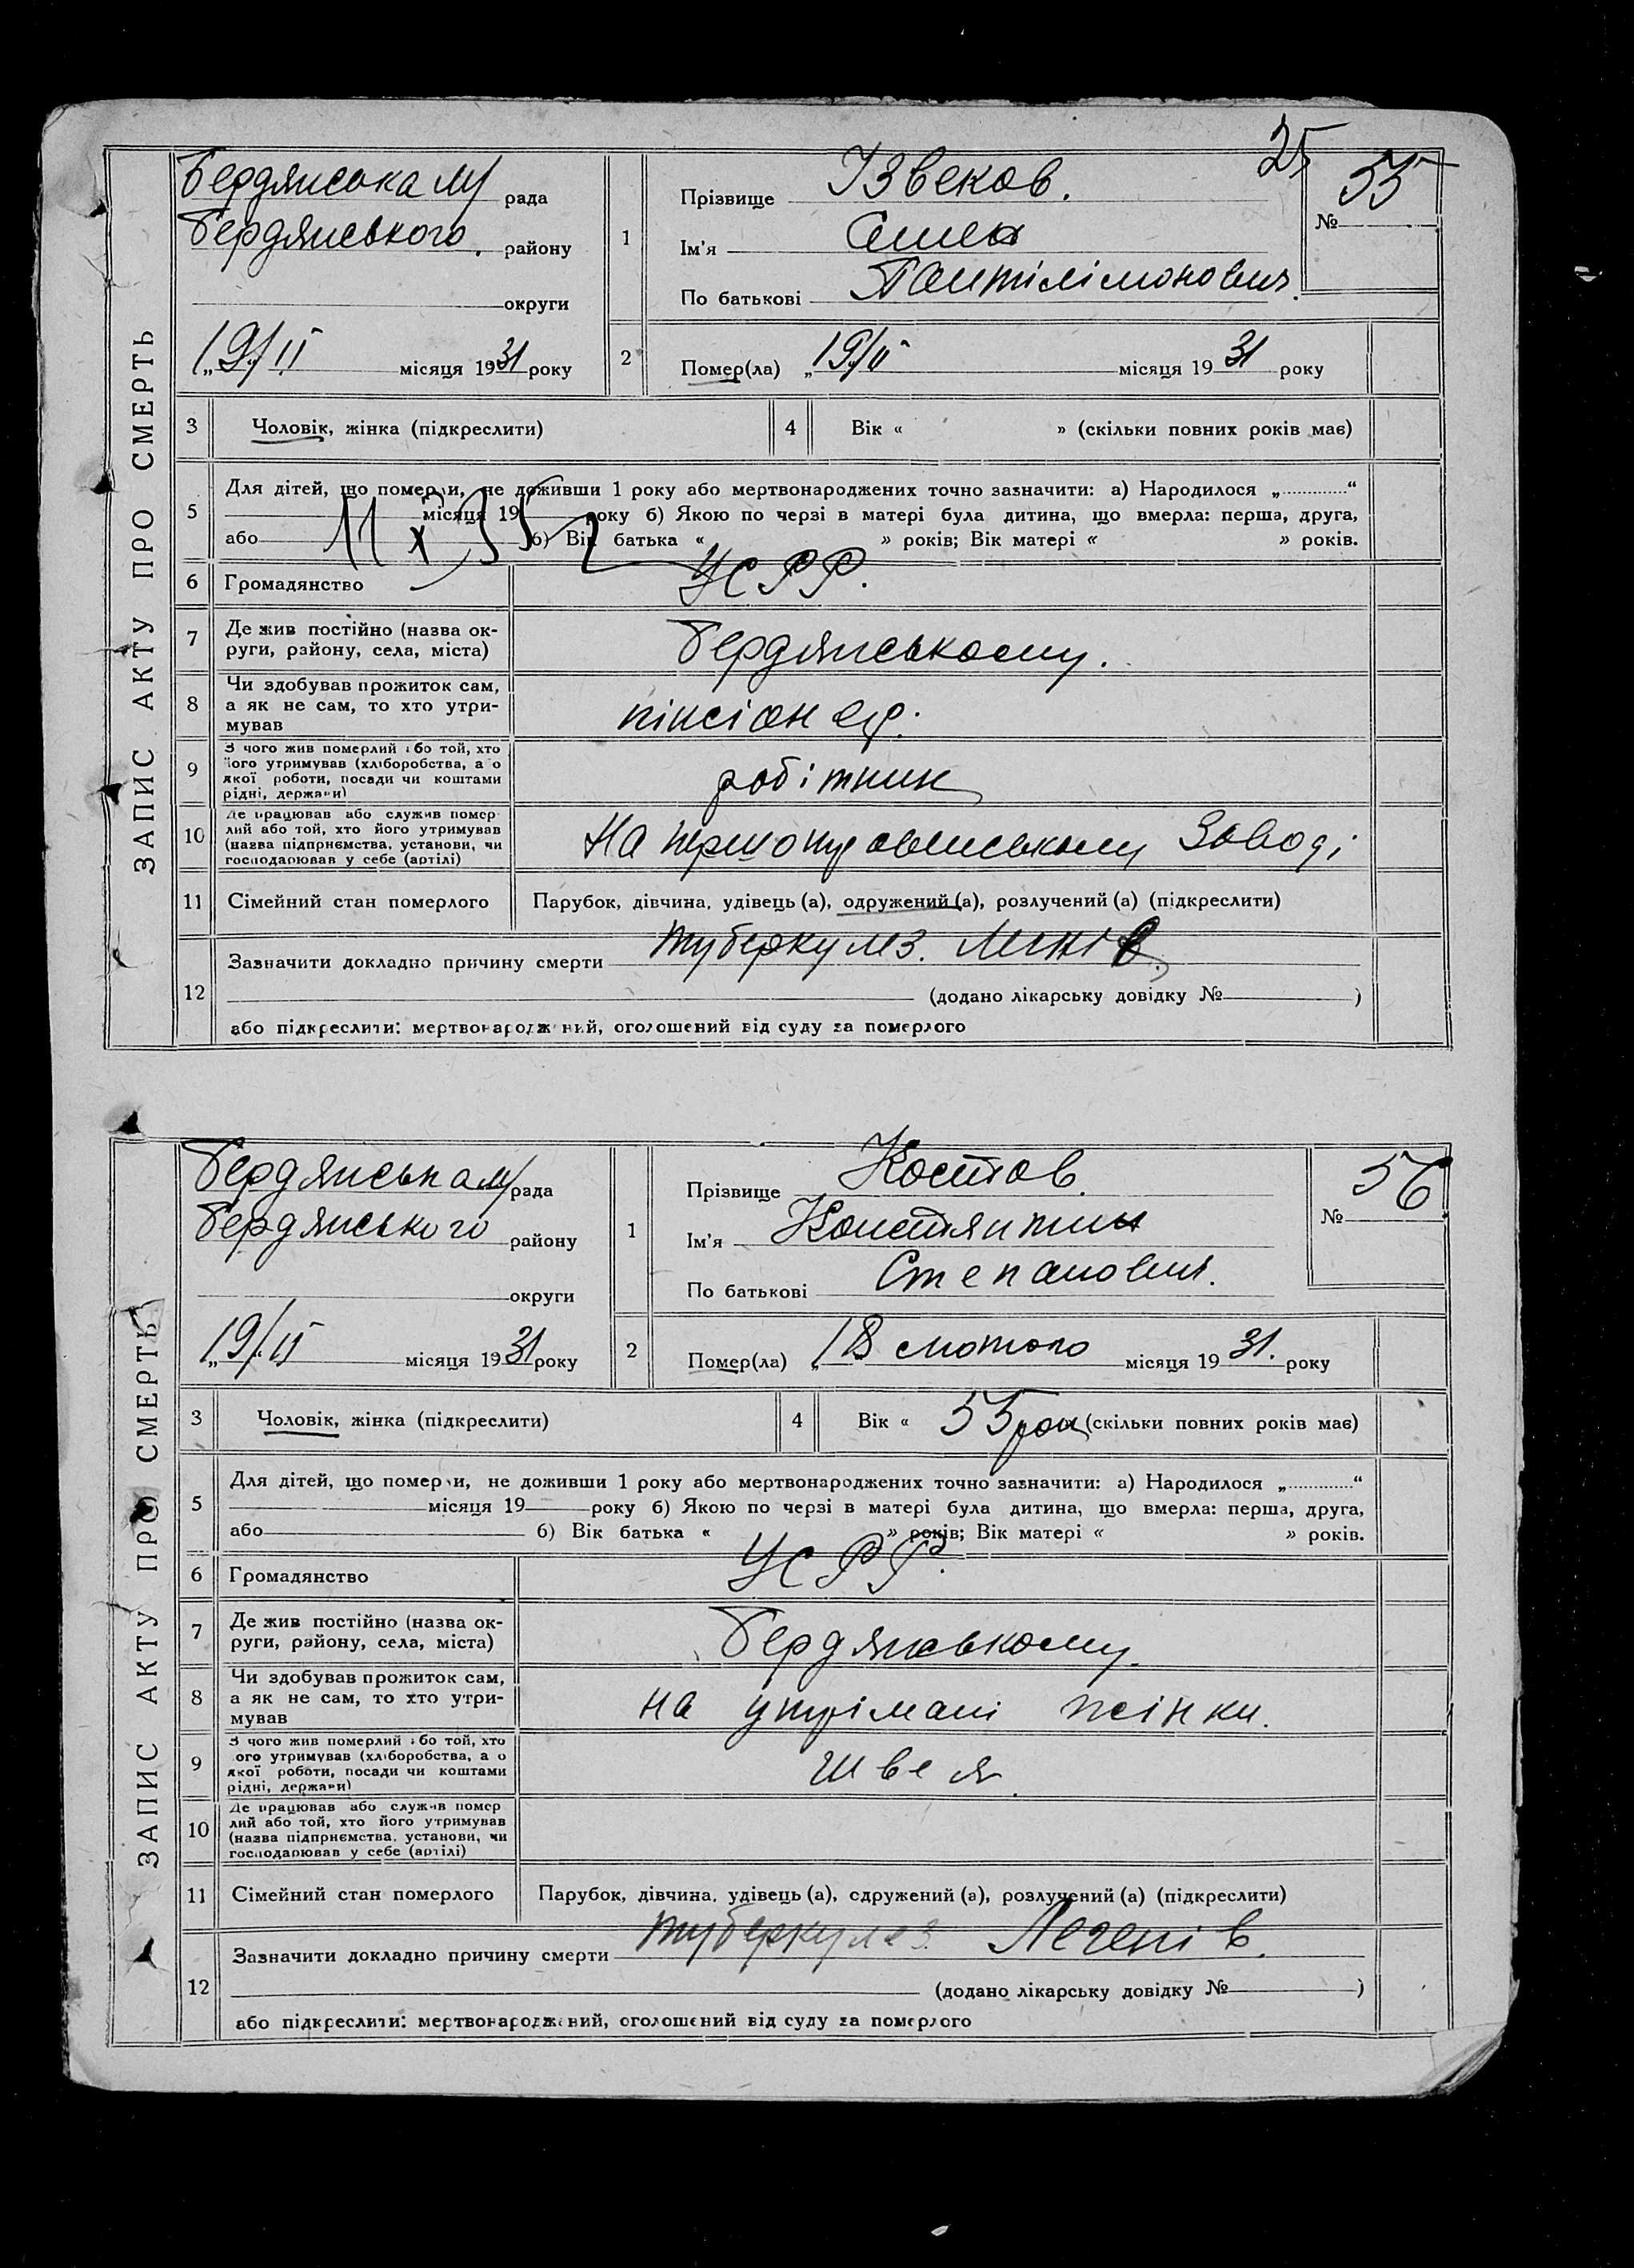 25
ЗАПИС АКТУ ПРО СМЕРТЬ
Бердянська м/ рада
Бердянського району
округи
„19/II місяця 1931 року
1
Прізвище Ізвеков.
Ім'я
По батькові Пантілімонович.
№ 55
2
Помер(ла) „19/II місяця 1931 року
3 Чоловік, жінка (підкреслити)
4 Вік « » (скільки повних років має)
5 Для дітей, що померли, не доживши 1 року або мертвонароджених точно зазначити: а) Народилося „ “
місяця 19 року б) Якою по черзі в матері була дитина, що вмерла: перша, друга,
або б) Вік батька « » років; Вік матері « » років.
6 Громадянство УСРР.
7 Де жив постійно (назва ок-
руги, району, села, міста) Бердянському.
8 Чи здобував прожиток сам,
а як не сам, то хто утри-
мував пінсіонер.
9 З чого жив померлий або той, хто
його утримував (хліборобства, або
якої роботи, посади чи коштами
рідні, держави) робітник
10 Де працював або служив помер
лий або той, хто його утримував
(назва підприємства, установи, чи
господарював у себе (артілі) На Заводі
11 Сімейний стан померлого Парубок, дівчина, удівець (а), одружений (а), розлучений (а) (підкреслити)
12 Зазначити докладно причину смерти туберкулез.
(додано лікарську довідку № )
або підкреслити: мертвонароджений, оголошений від суду за померлого
ЗАПИС АКТУ ПРО СМЕРТЬ
Бердянська м/ рада
Бердянського району
округи
„19/II місяця 1931 року
1
Прізвище Костов.
Ім'я Констянтин
По батькові Степанович.
№ 56
2
Помер(ла) „18 лютого місяця 1931. року
3 Чоловік, жінка (підкреслити)
4 Вік « 55 рок (скільки повних років має)
5 Для дітей, що померли, не доживши 1 року або мертвонароджених точно зазначити: а) Народилося „ “
місяця 19 року б) Якою по черзі в матері була дитина, що вмерла: перша, друга,
або б) Вік батька « » років; Вік матері « » років.
6 Громадянство УСРР.
7 Де жив постійно (назва ок-
руги, району, села, міста) Бердянському.
8 Чи здобував прожиток сам,
а як не сам, то хто утри-
мував на утрімані жінки.
9 З чого жив померлий або той, хто
ого утримував (хліборобства, а о
якої роботи, посади чи коштами
рідні, держави) швея.
10 Де працював або служив помер
лий або той, хто його утримував
(назва підприємства, установи, чи
господарював у себе (артілі)
11 Сімейний стан померлого Парубок, дівчина, удівець (а), одружений (а), розлучений (а) (підкреслити)
12 Зазначити докладно причину смерти туберкулез Легенів.
(додано лікарську довідку № )
або підкреслити: мертвонароджений, оголошений від суду за померлого